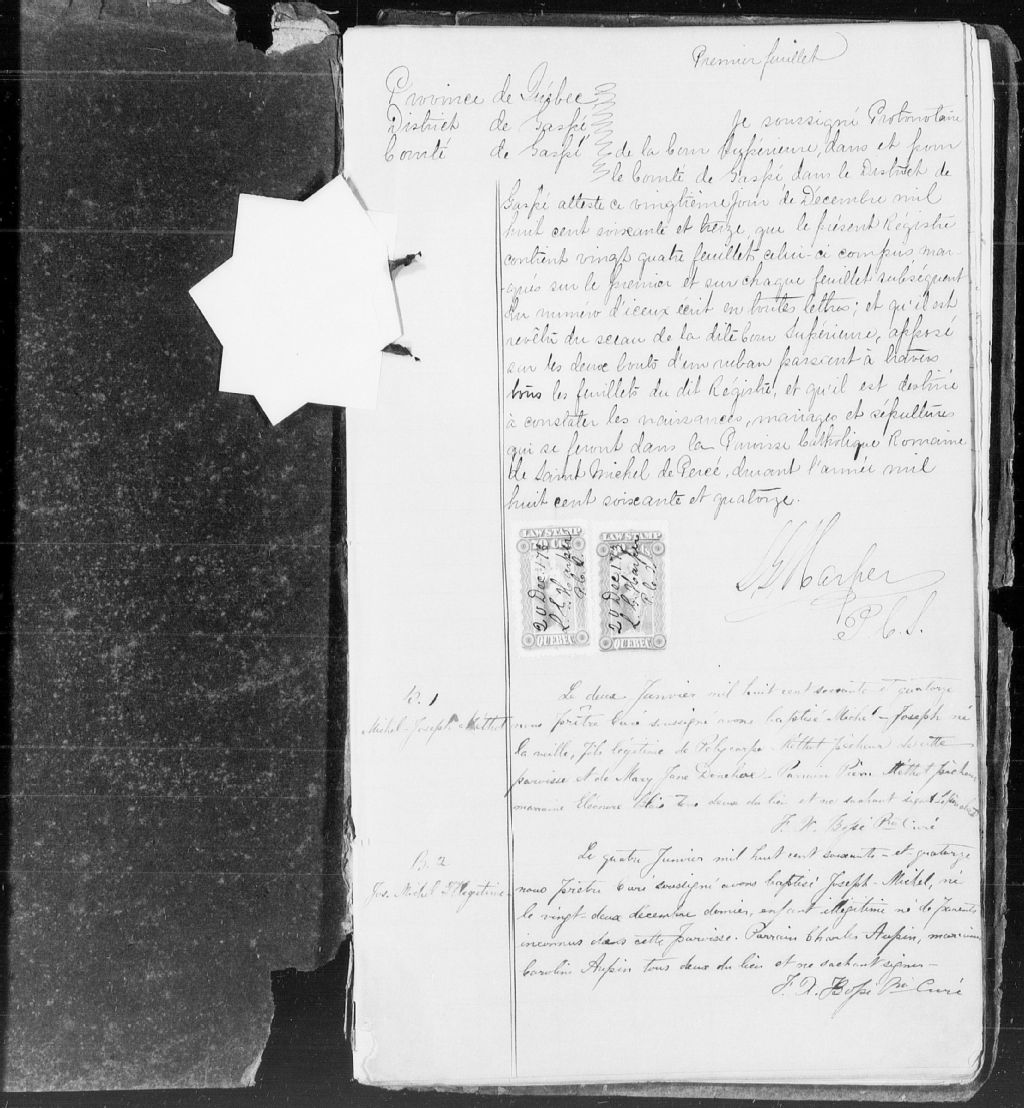 Premier feuillet
Province de Québec
District de Gaspé Je soussigné Protonotaire
Comté de Gaspé de la Cour Supérieure, dans et pour
le Comté de Gaspé dans le District de
Gaspé atteste ce vingtième jour de Décembre mil
huit cent soixante et treize, que le présent Régistre
contient vingt quatre feuillets celui-ci compris mar-
-qués sur le premier et sur chaque feuillet subséquent
du numéro d'iceux écrit en toutes lettres; et qu'il est
revêtu du sceau de la dite Cour Supérieure, apposé
sur les deux bouts d'un ruban passant à travers
tous les feuillets du dit Régistre, et qu'il est destiné
à constater les naissances, mariages et sépultures
qui se feront dans la Paroisse Catholique Romaine
de Saint Michel de Percé, durant l'année mil
huit cent soixante et quatorze.
LAW STAMP
20 Dec 173
L. G. Harper
P.C.S.
QUEBEC
LAW STAMP
20 Dec 173
L. G. Harper
P.C.S.
QUEBEC
LG Harper
P.C.S.
B. 1
Michel-Joseph Methot
Le deux Janvier mil huit cent soixante et quatorze
nous prêtre Curé soussigné avons baptisé Michel-Joseph né
la veille, fils légitime de Polycarpe Méthot pêcheur de cette
paroisse et de Mary Jane Donohue. Parrain Pierre Méthot pêcheur
marraine Eléonore tous deux du lieu et ne sachant signer
F. X. Bossé Ptre Curé
B. 2
Jos. Michel Illegitime
Le quatre Janvier mil huit cent soixante-et-quatorze
nous prêtre Curé soussigné avons baptisé Joseph-Michel, né
le vingt-deux décembre dernier, enfant illégitime né de parents
inconnus dans cette paroisse. Parrain Charles Aupin, marraine
Caroline Aupin tous deux du lieu et ne sachant signer-
F. X. Bossé Ptre Curé